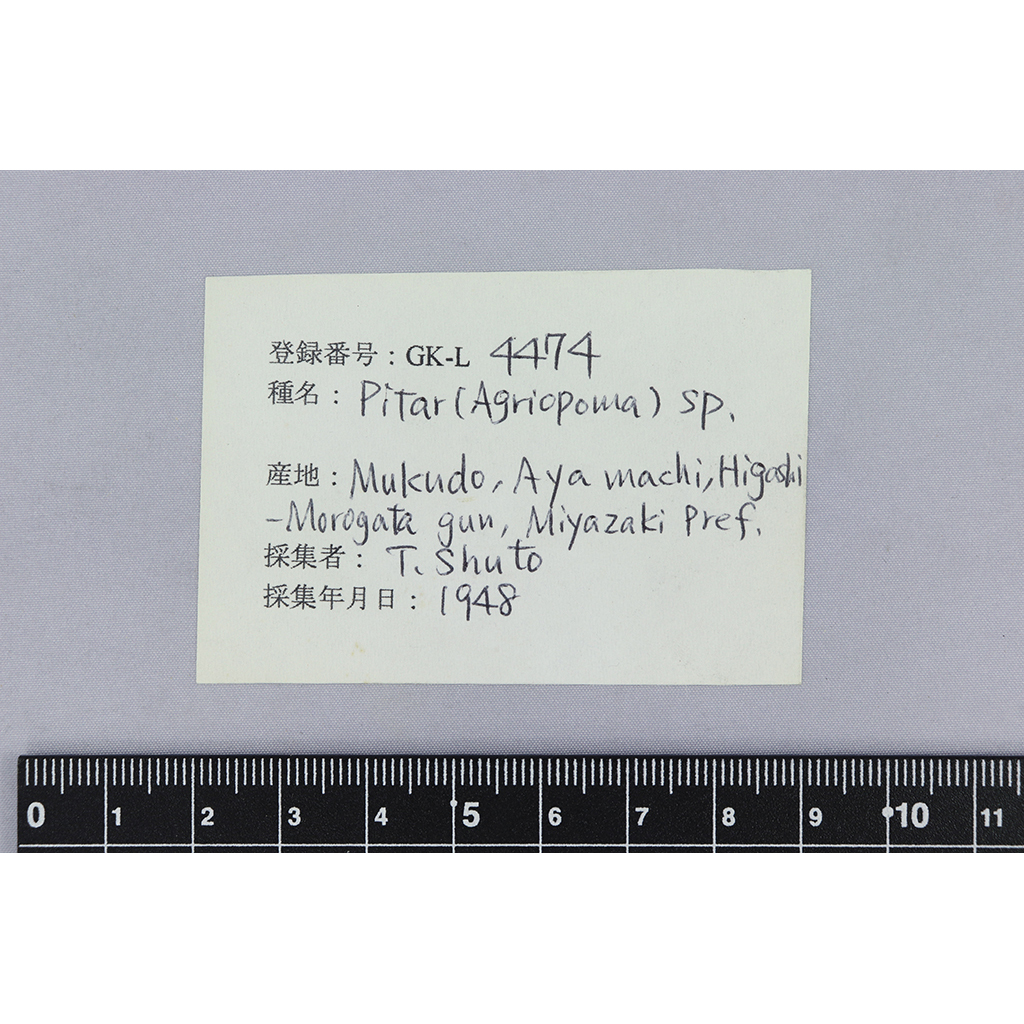 登録番号：GK-L 4474
種名：Pitar (Agriopoma) sp.
産地：Mukudo, Aya machi, Higashi
-Morogata gun, Miyazaki Pref.
採集者：T. Shuto
採集年月日：1948
0 1 2 3 4 5 6 7 8 9 10 11